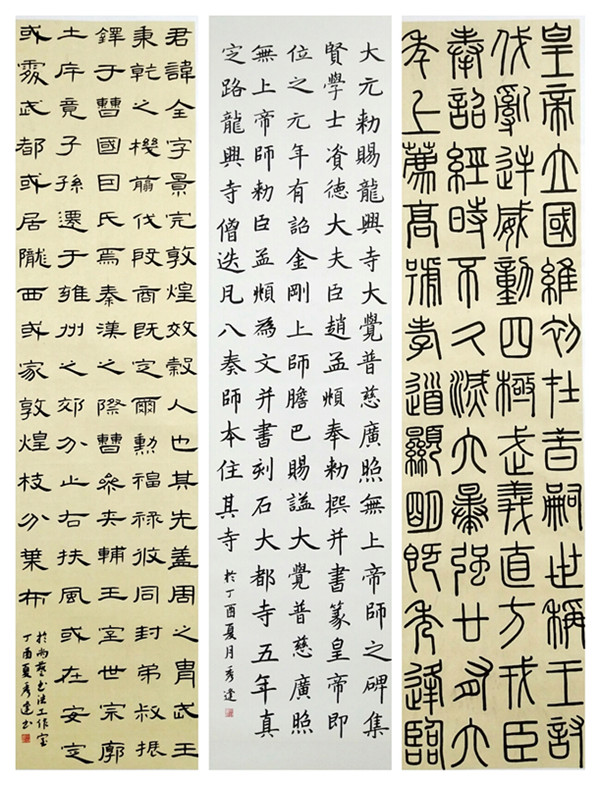 皇帝立國維初在昔嗣世稱王討
伐亂逆威動四極武義直方戎臣
奉詔經時不久滅六暴強廿有六
年上薦高號孝道顯明既秀達臨
大元勅賜龍興寺大覺普慈廣照無上帝師之碑集
賢學士資德大夫臣趙孟頫奉勅撰并書篆皇帝即
位之元年有詔金剛上師膽巴賜謚大覺普慈廣照
無上帝師勅臣孟頫為文并書刻石大都寺五年真
定路龍興寺僧迭凡八奏師本住其寺 於丁酉夏月秀達
君諱全字景完敦煌效穀人也其先蓋周之胄武王
秉乾之機翦伐殷商既定爾勳福祿攸同封弟叔振
鐸于曹國因氏焉秦漢之際曹參夾輔王室世宗廓
土斥竟子孫遷于雍州之郊分止右扶風或在安定
或處武都或居隴西或家敦煌枝分葉布
於尚藝書法工作室
丁酉夏秀達書